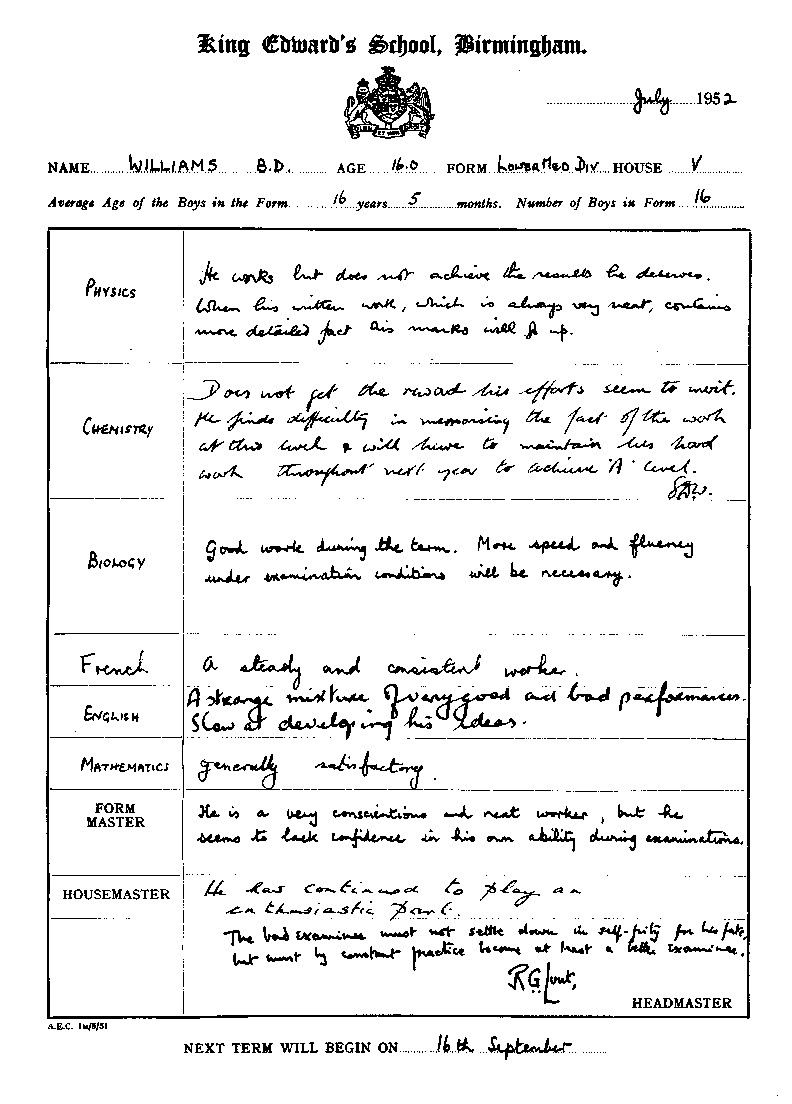 King Edward's School, Birmingham.
July 1952
NAME WILLIAMS B.D. AGE 16.0 FORM Lower Med Div HOUSE V
Average Age of the Boys in the Form 16 years 5 months. Number of Boys in Form 16
PHYSICS
He works but does not achieve the results he deserves.
When his written work, which is always very neat, contains
more detailed fact his marks will go up.
CHEMISTRY
Does not get the reward his efforts seem to merit.
He finds difficulty in memorising the fact of the work
at this level & will have to maintain his hard
work throughout next year to achieve 'A' level.
BIOLOGY
Good work during the term. More speed and fluency
under examination conditions will be necessary.
French
A steady and consistent worker.
ENGLISH
A strange mixture of very good and bad performances.
Slow at developing his ideas.
MATHEMATICS
generally satisfactory.
FORM
MASTER
He is a very conscientious and neat worker, but he
seems to lack confidence in his own ability during examinations.
HOUSEMASTER
He has continued to play an
enthusiastic part.
The bad examinee must not settle down in self-pity for his fate,
but must by constant practice become at least a better examinee.
HEADMASTER
A.E.C. 1m/5/51
NEXT TERM WILL BEGIN ON 16th September